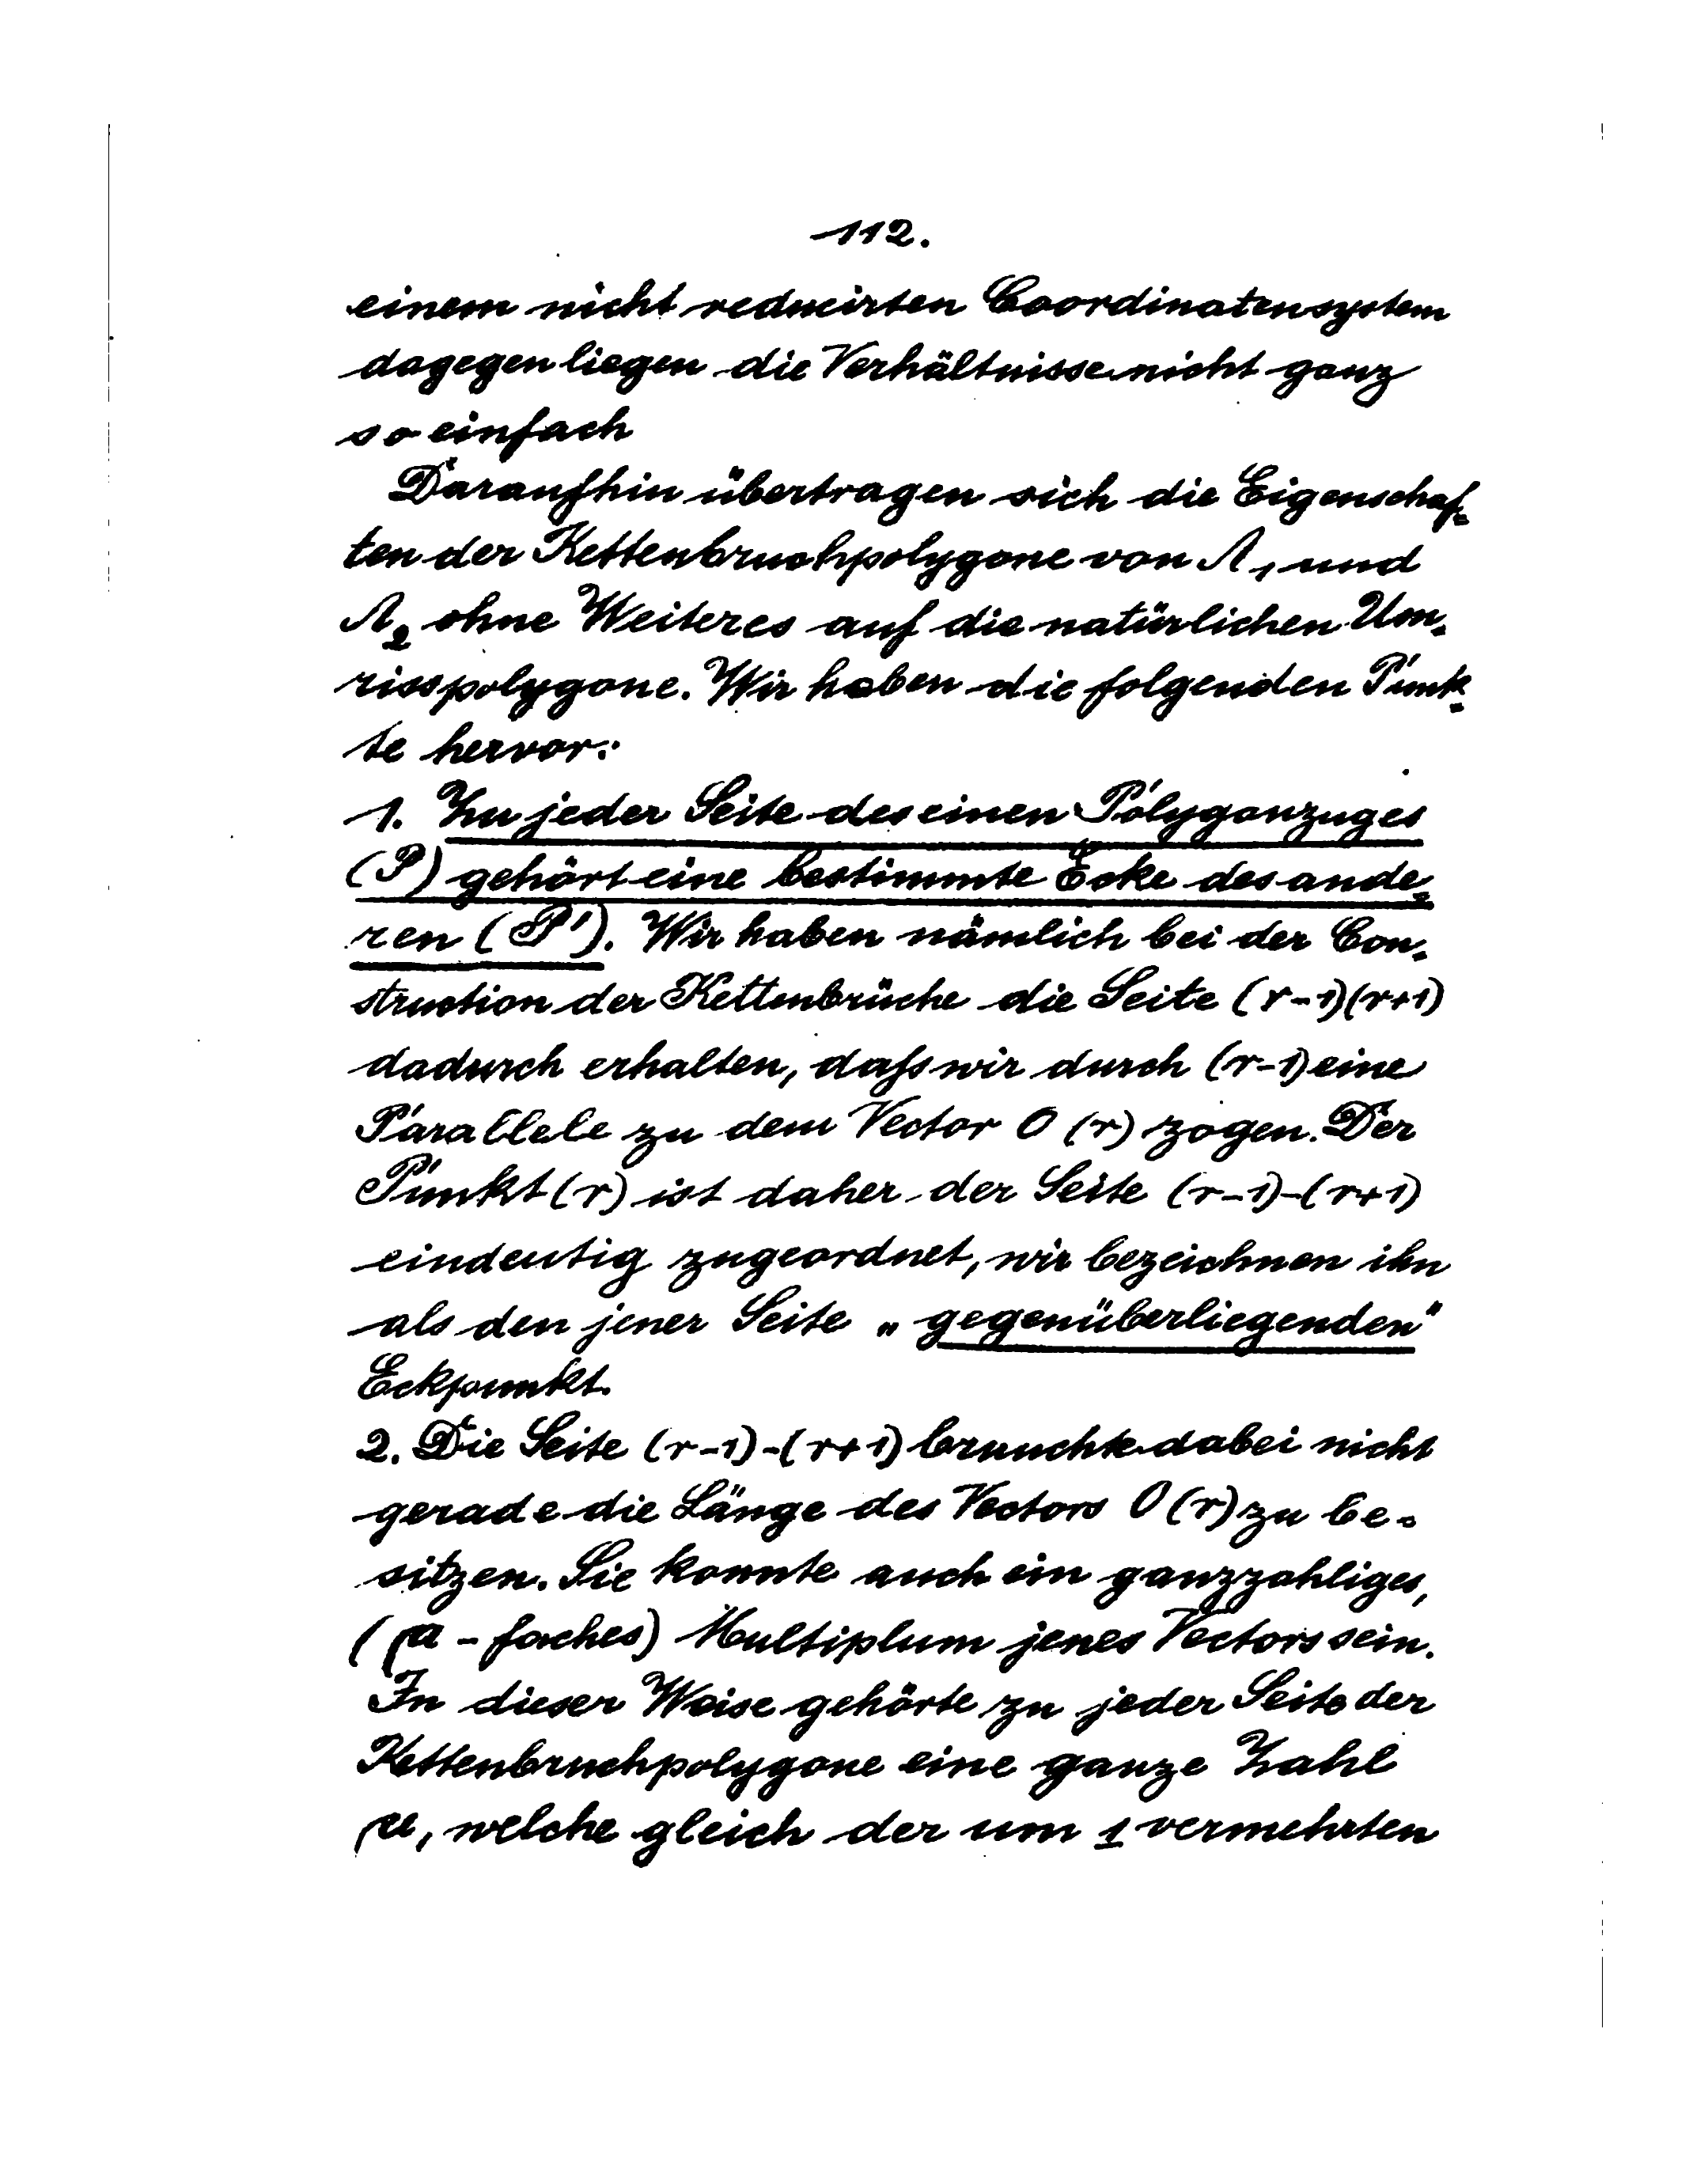 112.
einem nicht reducirten Coordinatensystem
dagegen liegen die Verhältnisse nicht ganz
so einfach
Daraufhin übertragen sich die Eigenschaf-
ten der Kettenbruchpolygone von Λ₁ und
Λ₂ ohne Weiteres auf die natürlichen Um-
risspolygone. Wir heben die folgenden Punk-
te hervor:
1. Zu jeder Seite des einen Polygonzuges
(P) gehört eine bestimmte Ecke des ande-
ren (P'). Wir haben nämlich bei der Con-
struction der Kettenbrüche die Seite (r-1)(r+1)
dadurch erhalten, daſs wir durch (r-1) eine
Parallele zu dem Vector O (r) zogen. Der
Punkt (r) ist daher der Seite (r-1)-(r+1)
eindeutig zugeordnet, wir bezeichnen ihn
als den jener Seite „gegenüberliegenden"
Eckpunkt.
2. Die Seite (r-1)-(r+1) brauchte dabei nicht
gerade die Länge des Vectors O (r) zu be-
sitzen. Sie konnte auch ein ganzzahliges,
(μ-faches) Multiplum jenes Vectors sein.
In dieser Weise gehörte zu jeder Seite der
Kettenbruchpolygone eine ganze Zahl
μ, welche gleich der um 1 vermehrten